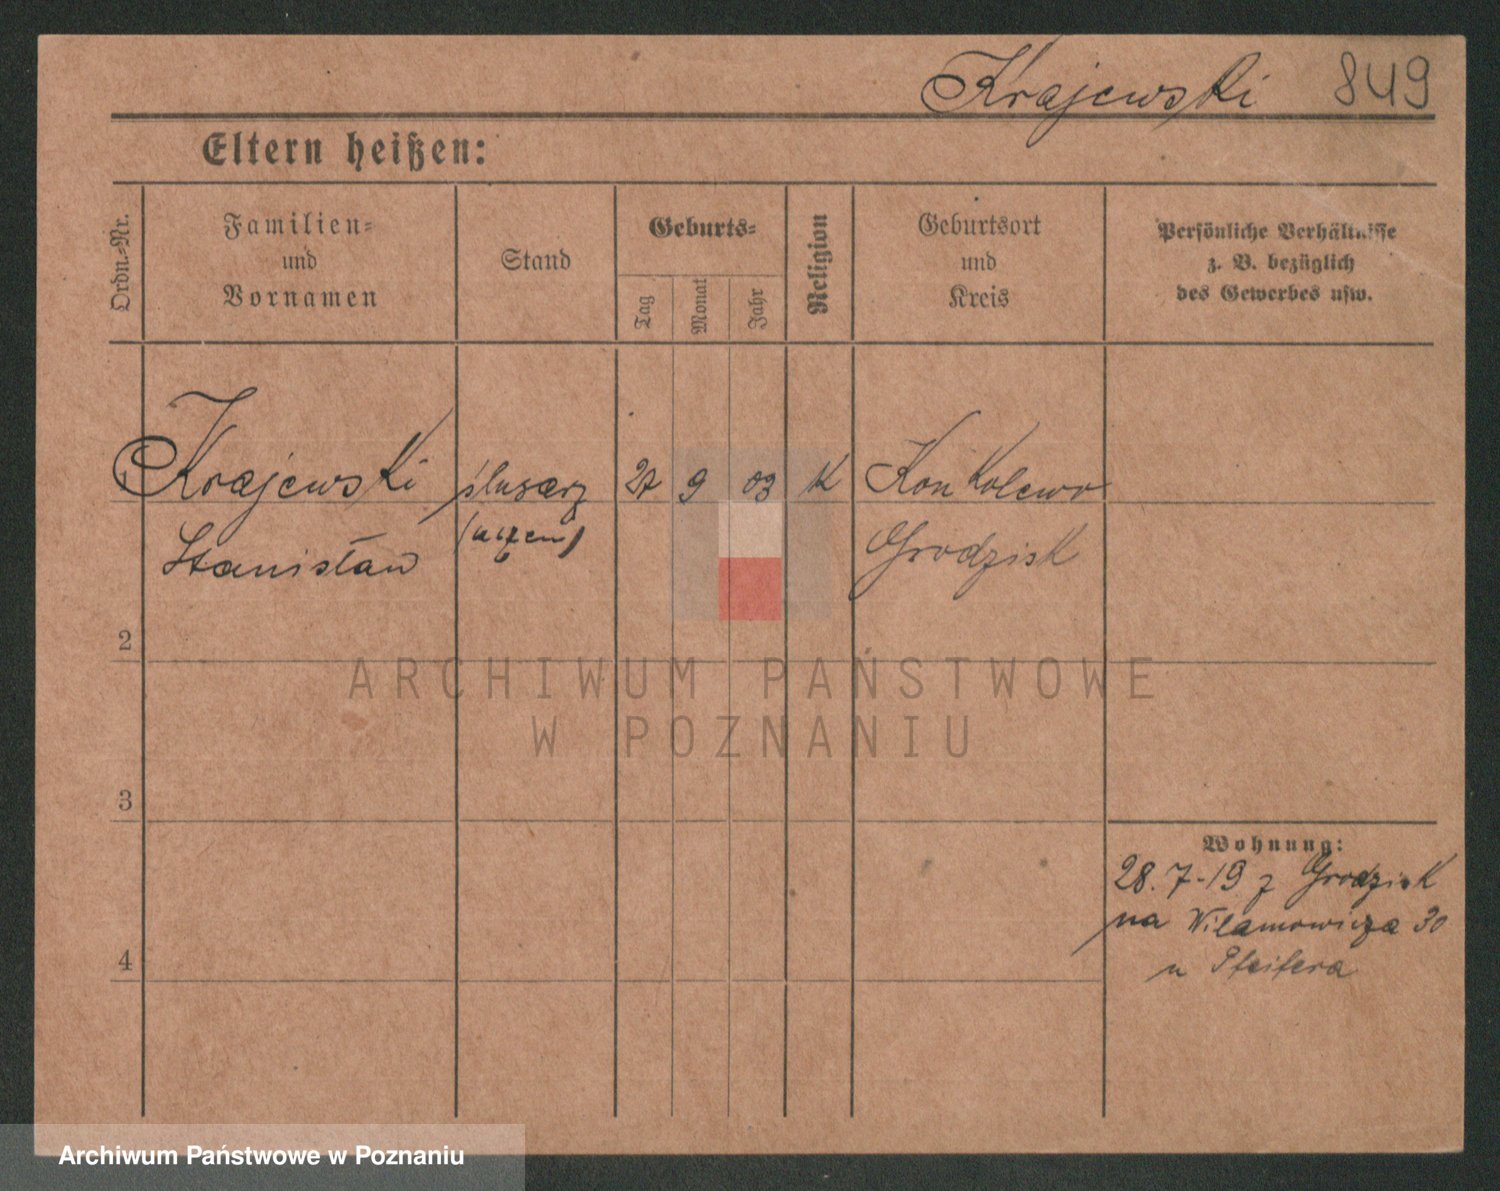 Krajewski 849
Eltern heißen:
Ordn.-Nr.
Familien-
und
Vornamen
Stand
Geburts-
Tag
Monat
Jahr
Religion
Geburtsort
und
Kreis
Persönliche Verhältnisse
z. B. bezüglich
des Gewerbes usw.
1 Krajewski ślusarz 27 9 03 K Konkolewo
(uczeń)
Stanisław Grodzisk
2
ARCHIWUM PAŃSTWOWE
W POZNANIU
3
Wohnung:
28. 7-19 z Grodzisk
na Wilamowicza 30
4
u Pfeifera
Archiwum Państwowe w Poznaniu